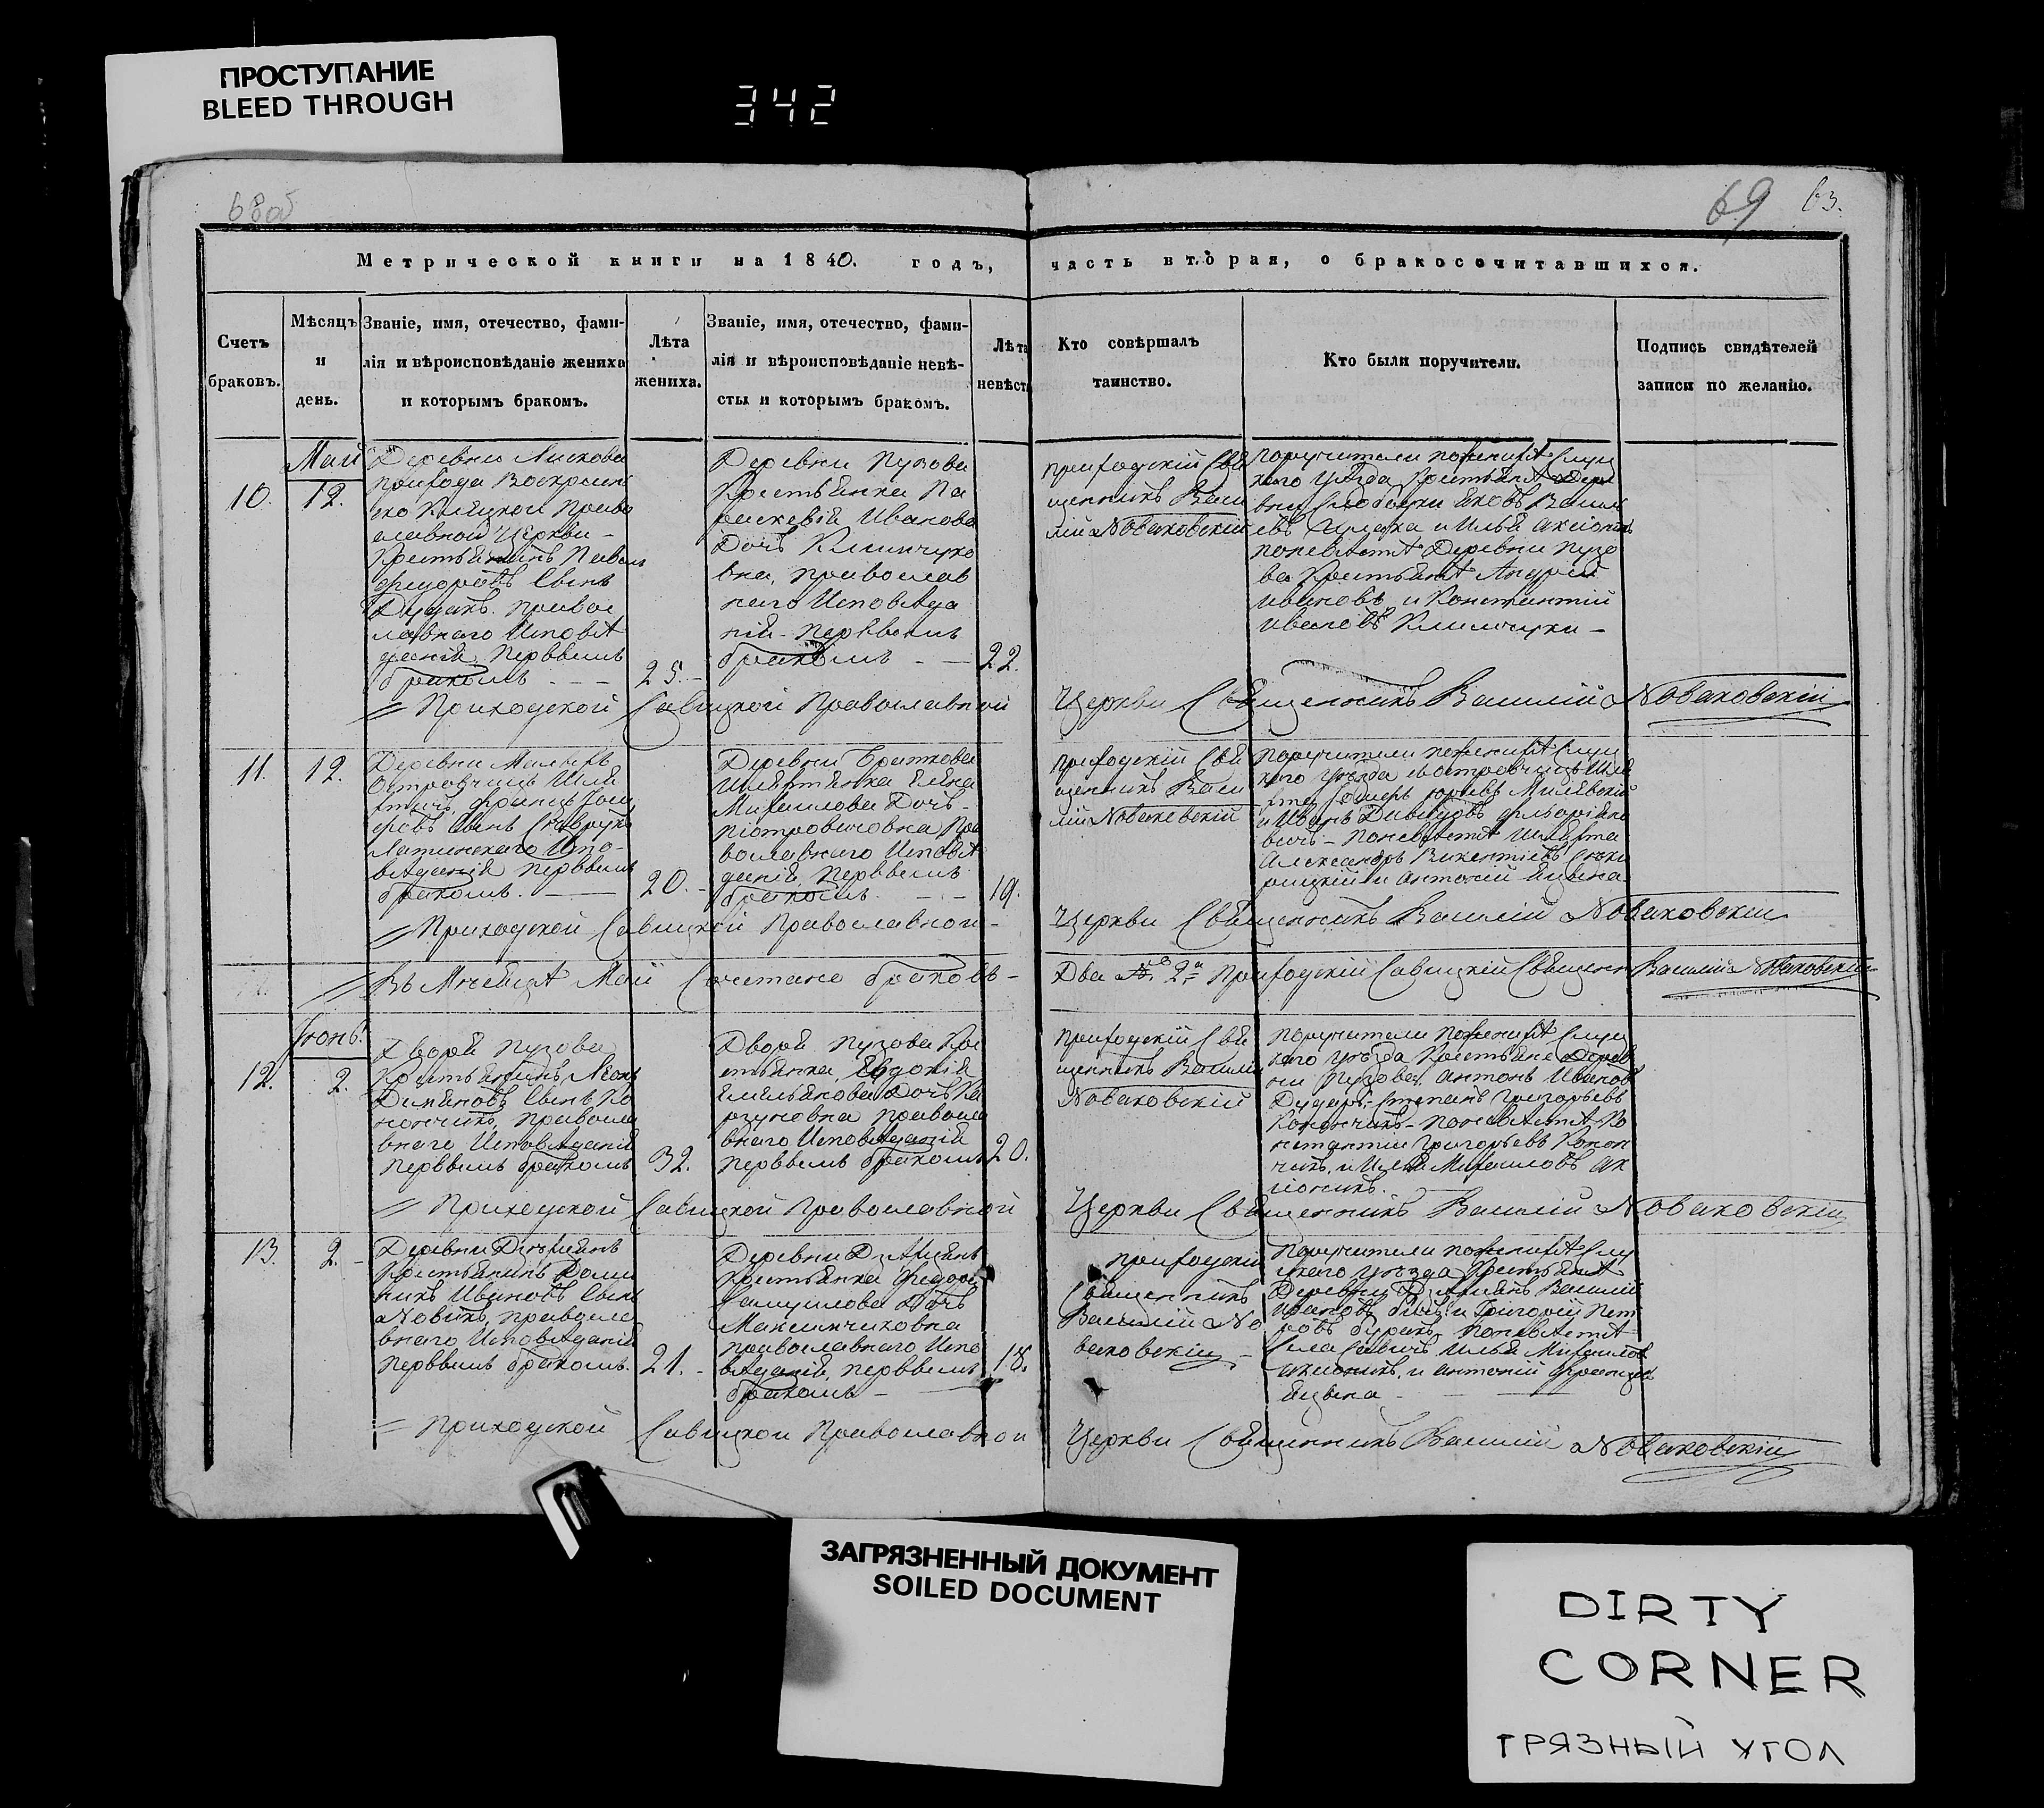 ПРОСТУПАНИЕ
BLEED THROUGH
342
68об
69 63.
Метрической книги на 1840. годъ, часть вторая, о бракосочитавшихся.
Счетъ браковъ.
Мѣсяцъ и день.
Званіе, имя, отечество, фами-
лія и вѣроисповѣданіе жениха
и которымъ бракомъ.
Лѣта
жениха.
Званіе, имя, отечество, фами-
лія и вѣроисповѣданіе невѣ-
сты и которымъ бракомъ.
Лѣта
невѣсты
Кто совѣршалъ
таинство.
Кто были поручители.
Подпись свидѣтелей
записи по желанію.
Май
10. 12.
Деревни Лискова
прихода Воскресен
Православной Церкви -
Крестьянинъ Павелъ
Федоровъ Сынъ
Дударъ православнаго Исповѣ
данія Первымъ
бракомъ - - -
25. -
Деревни Пузова
Крестьянка Па
раскевія Иванова
Дочь Климчуко
вна, православ
наго Исповѣда
нія - первымъ
бракомъ - —
22.
приходскій Свя
щенникъ Васи
лій Новаковскій
Поручители по женихѣ Слуц
каго уѣзда Крестьяне Дере
вни Слободки Яковъ Васил
евъ и Илья
по невѣстѣ Деревни Пузо
ва Крестьяне Андрей
Ивановъ и Константій
Ивановъ Климчуки -
Приходской Савицкой Православной Церкви Священникъ Василій Новаковскій
11. 12.
Деревни Малыхъ
Островчицъ Шля
хтичъ Францъ
Сынъ
Латинскаго Испо-
вѣданія первымъ
бракомъ. - —
20. -
Деревни Браткова
Шляхтянка Елена
Михаилова Дочь -
Піотровичовна Пра
вославнаго Исповѣ
данія Первымъ
бракомъ. - -
19.
приходскій Свя
щенникъ Васи
лій Новаковскій
Поручители по женихѣ Слуц
каго уѣзда Островчицъ Шля
Юрьевъ Милевскій
и Иванъ Давидовъ
вичъ - По невѣстѣ Шляхта
Александръ Викентіевъ
и Антоній Яцына
Приходской Савицкой Православной - Церкви Священникъ Василій Новаковскій
Въ Мѣсяцѣ Маѣ Сочетано браковъ - Два 2а Приходскій Савицкій Священ Василій Новаковскій
Іюнь.
12. 2.
Двора Пузова
Крестьянинъ Леонъ
Даміановъ Сынъ Ко
нончикъ, Правосла
внаго Исповѣданія
первымъ бракомъ
32.
Двора Пузова Кре
стьянка Евдокія
Емильянова Дочь
Правосла
внаго Исповѣданія
первымъ бракомъ
20.
приходскій Свя
щенникъ Василій
Новаковскій
Поручители по женихѣ Слуц
каго уѣзда Крестьяне Дерев
ни Пузова, Антонъ Ивановъ
Дударъ, Степанъ Григорьевъ
Конончикъ - По невѣстѣ Ко
нстантій Григорьевъ Конон
чикъ, и Илья Михаиловъ Ак
сіоникъ.
Приходской Савицкой Православной Церкви Священникъ Василій Новаковскій
13. 2. -
Крестьянинъ Доми
никъ Ивановъ Сынъ
Новикъ, правосла
внаго Исповѣданія
первымъ бракомъ.
21. -
Крестьянка Федора
Самуилова Дочь
Максимчиковна
православнаго Испо
вѣданія, первымъ
бракомъ -
18.
приходскій
Священникъ
Василій Но
ваковскій -
Поручители по женихѣ Слу
цкаго уѣзда Крестьяне
Василій
Ивановъ и Григорій Пет
ровъ Буракъ, по невѣстѣ
Илья Михаиловъ
Аксіоникъ, и Антоній Францовъ
Яцына -
Приходской Савицкой Православной Церкви Священникъ Василій Новаковскій
ЗАГРЯЗНЕННЫЙ ДОКУМЕНТ
SOILED DOCUMENT
DIRTY
CORNER
ГРЯЗНЫЙ УГОЛ